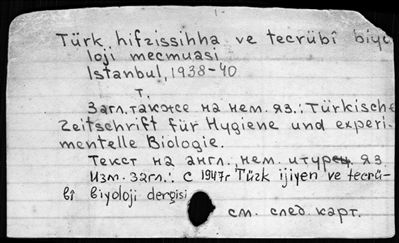 Türk hifzissihha ve tecrübî biyo
loji mecmuasi
Istanbul, 1938-40
т.
Загл. также на нем. яз.: Türkische
Zeitschrift für Hygiene und experi-
mentelle Biologie.
Текст на англ., нем. и турец. яз.
Изм. загл.: с 1947г Türk ijiyen ve tecrü-
bî biyoloji dergisi
см. след. карт.